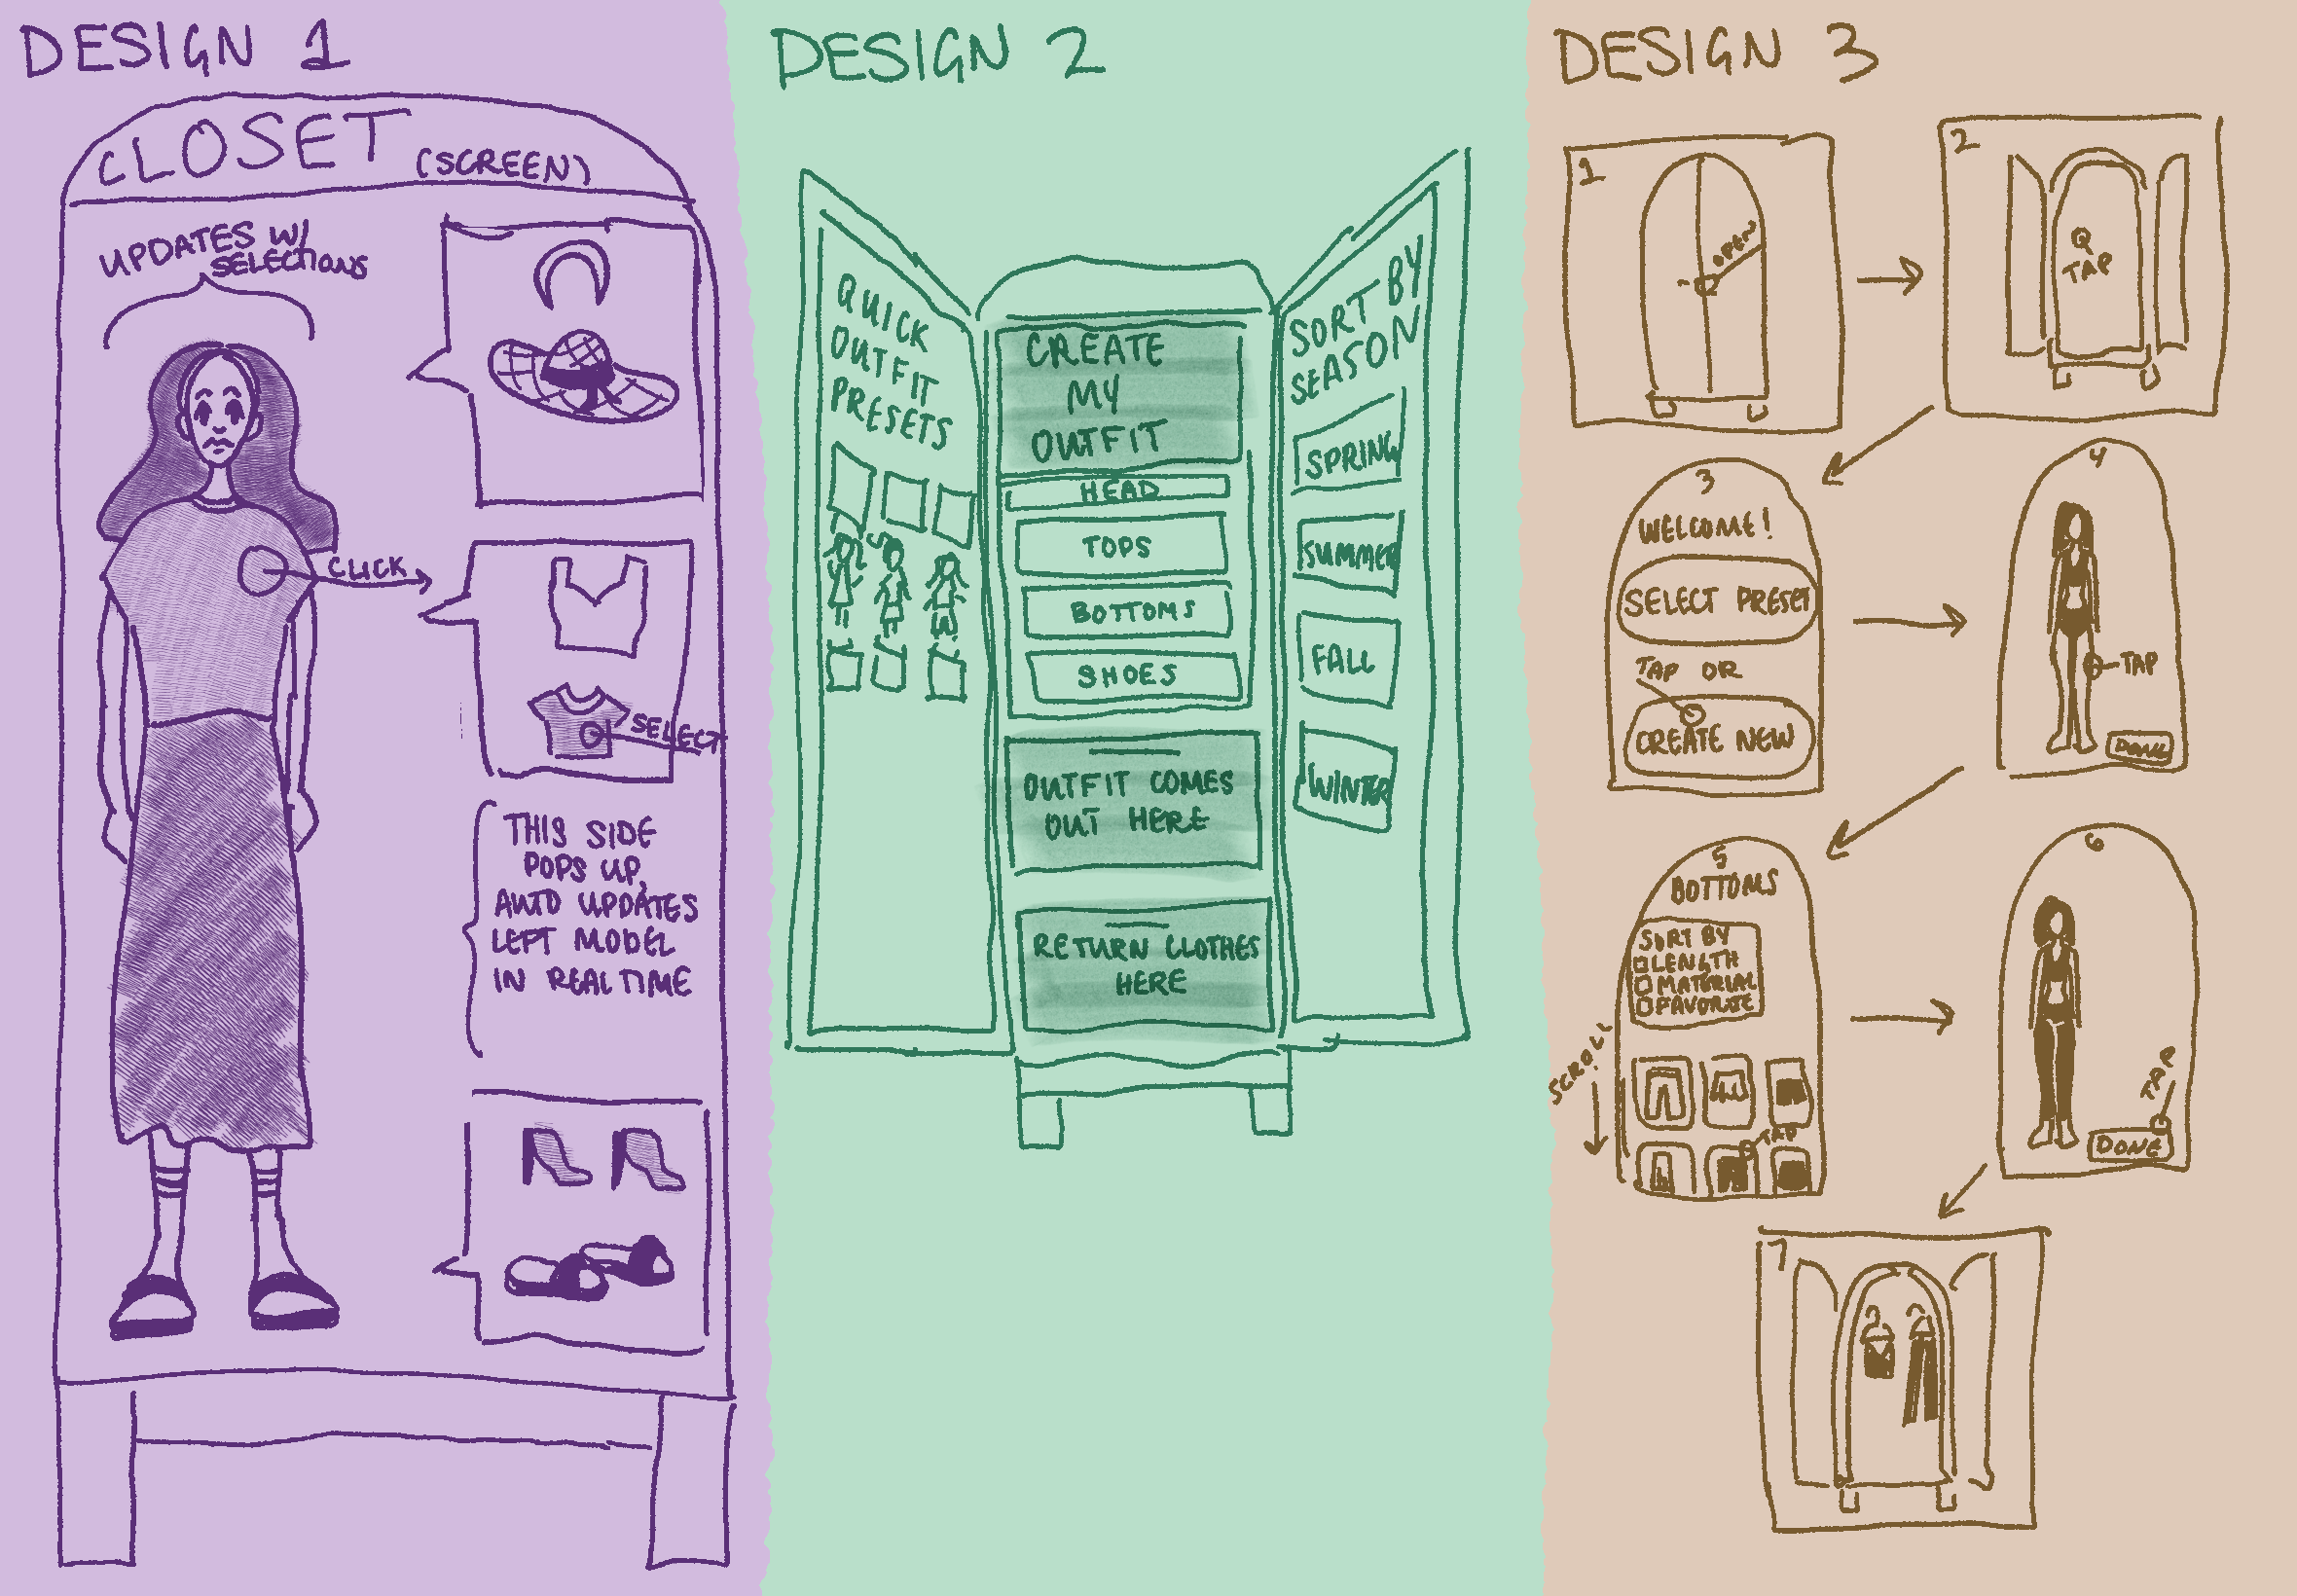 DESIGN 1
CLOSET
(SCREEN)
UPDATES W/
SELECTIONS
CLICK
SELECT
THIS SIDE
POPS UP,
AUTO UPDATES
LEFT MODEL
IN REAL TIME
DESIGN 2
QUICK
OUTFIT
PRESETS
CREATE
MY
OUTFIT
HEAD
TOPS
BOTTOMS
SHOES
OUTFIT COMES
OUT HERE
RETURN CLOTHES
HERE
SORT BY
SEASON
SPRING
SUMMER
FALL
WINTER
DESIGN 3
1
OPEN
2
TAP
3
WELCOME!
SELECT PRESET
TAP OR
CREATE NEW
4
TAP
DONE
5
BOTTOMS
SORT BY
LENGTH
MATERIAL
FAVORITE
SCROLL
TAP
6
TAP
DONE
7